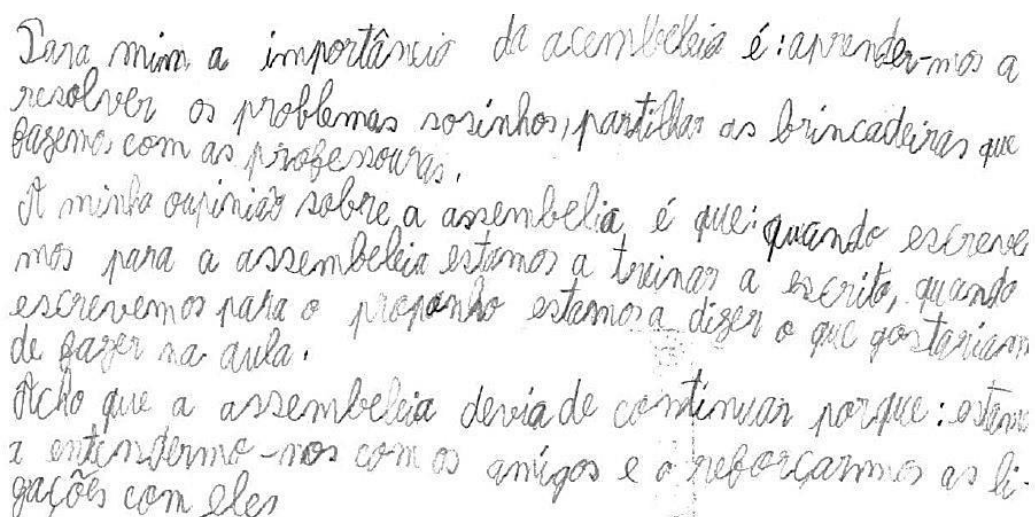 Para mim a importância da acembeleia é: aprender-mos a
resolver os problemas sosinhos, partilhar as brincadeiras que
fazemos com as professouras.
A minha oupinião sobre a assembelia é que: quando escreve
mos para a assembeleia estamos a treinar a escrita, quando
escrevemos para o proponho estamos a dizer o que gostariam
de fazer na aula.
Acho que a assembeleia devia de continuar porque: estamos
a entendermo-nos com os amigos e a reforçarmos as li-
gações com eles